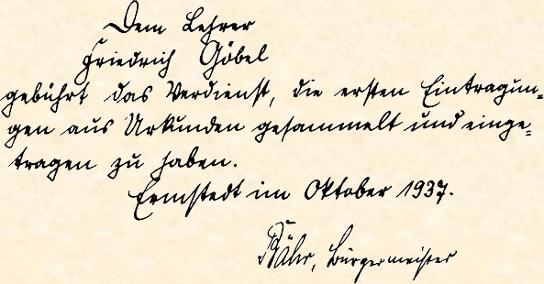 Dem Lehrer
Friedrich Göbel
gebührt das Verdienst, die ersten Eintragun=
gen aus Urkunden gesammelt und einge=
tragen zu haben.
Ermstedt im Oktober 1937.
Bürgermeister